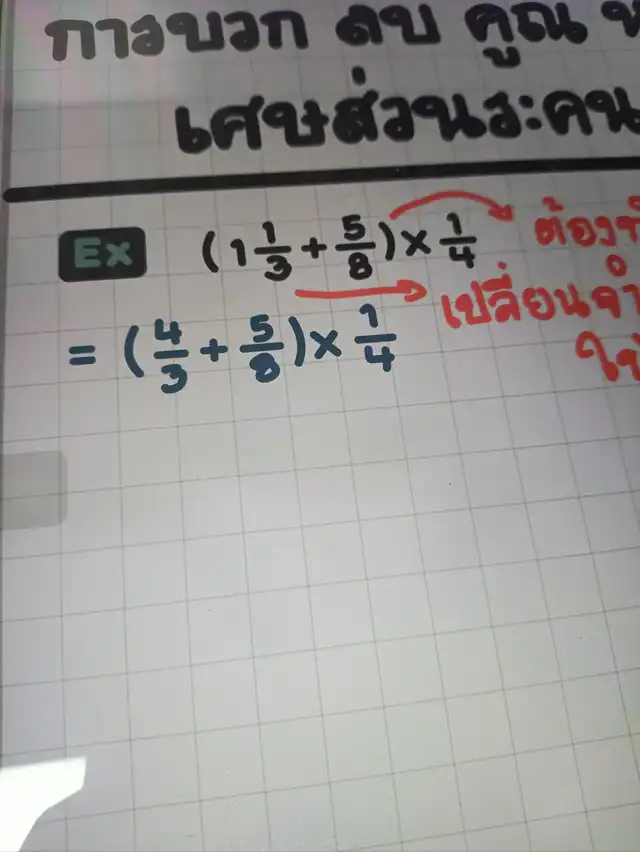 การบวก ลบ คูณ
เศษส่วนระคน
Ex (1 1/3 + 5/8) × 1/4
= (4/3 + 5/8) × 1/4
เปลี่ยน